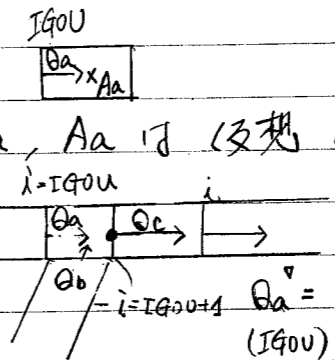 IGOU
Qa
×Aa
, Aa は (仮想
i=IGOU
i
Qa
Qc
Qb
i=IGOU+1
Qa▽=
(IGOU)